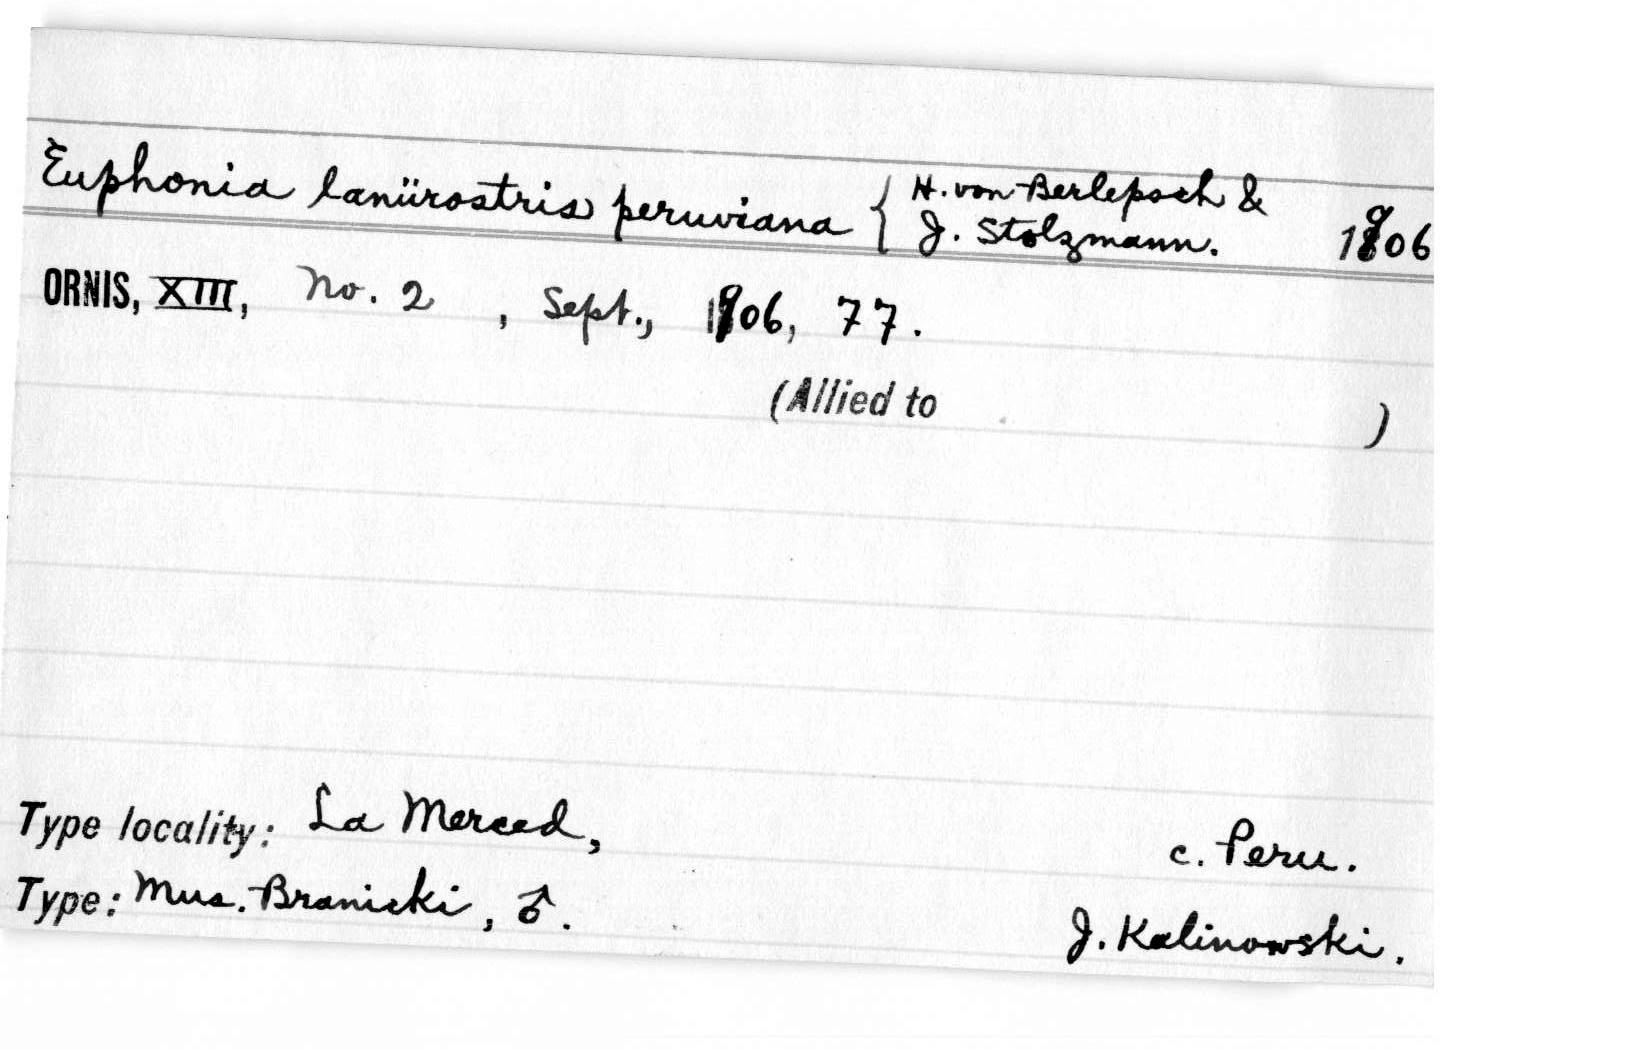 Euphonia laniirostris peruviana { H. von Berlepsch & J. Stolzmann. 1906
ORNIS, XIII, No. 2, Sept., 1906, 77.
(Allied to )
Type locality: La Merced, c. Peru.
Type: Mus. Branicki, ♂. J. Kalinowski.